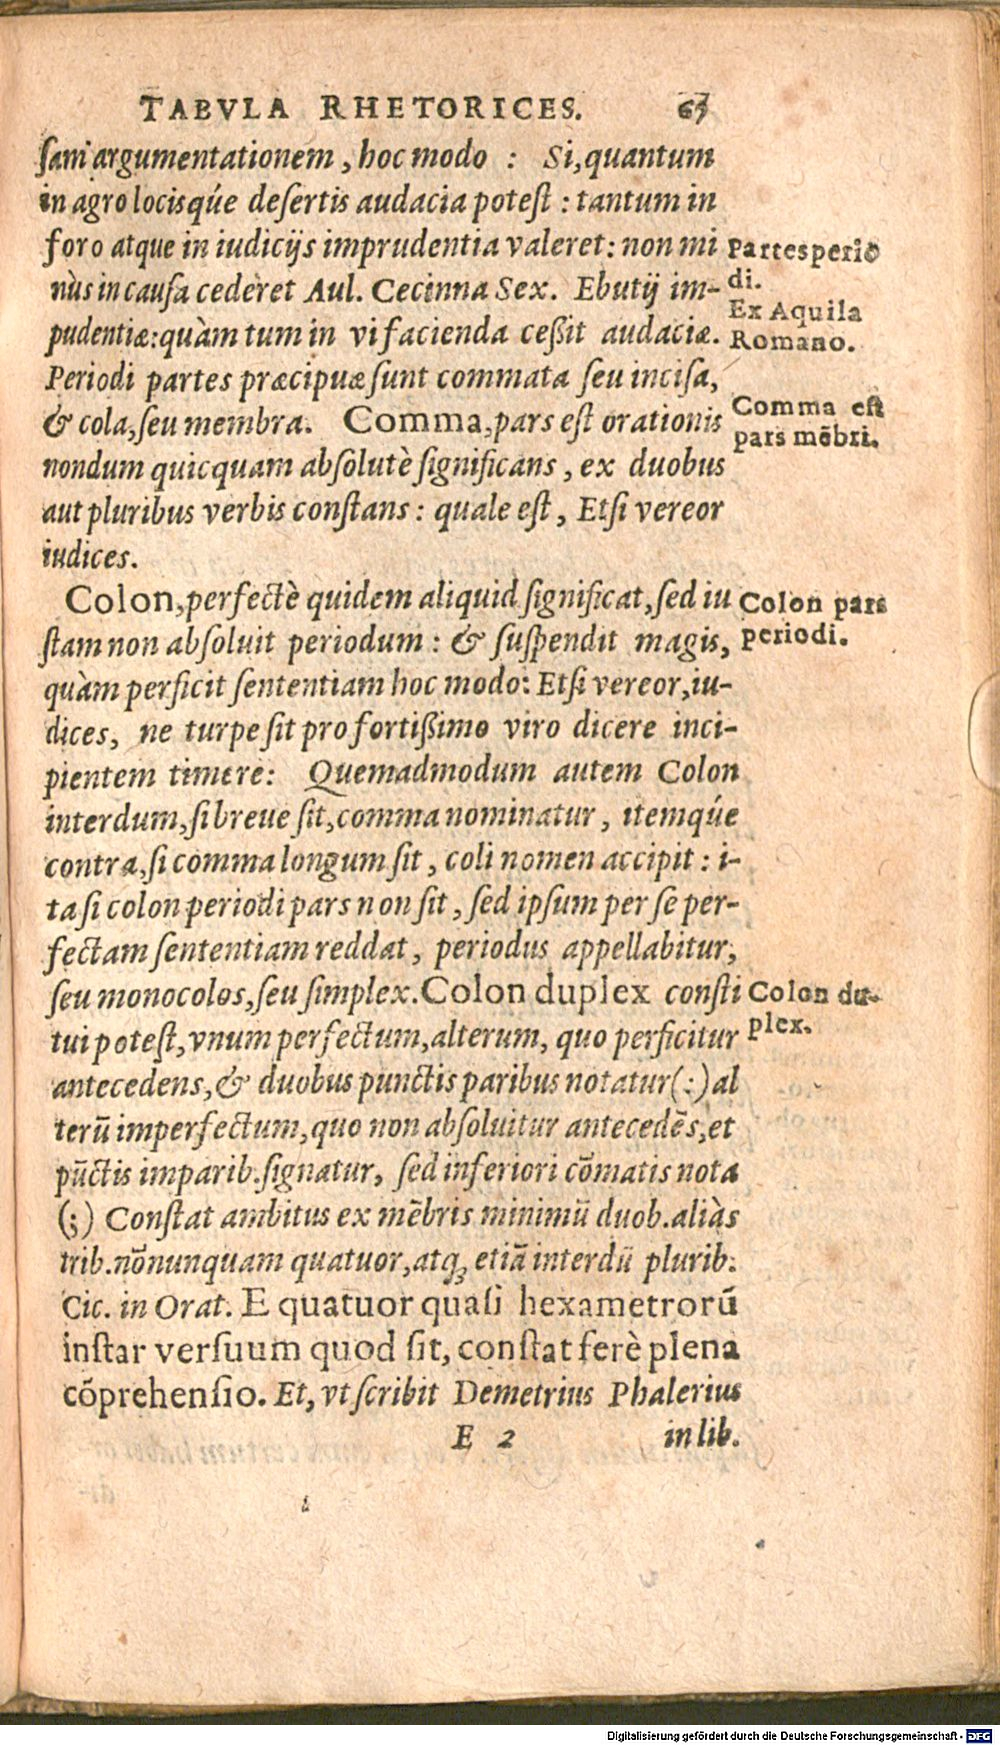 TABVLA RHETORICES. 67
ſani argumentationem, hoc modo : Si, quantum
in agro locisq́ue deſertis audacia poteſt : tantum in
foro atque in iudicijs imprudentia valeret: non mi
nùs in cauſa cederet Aul. Cecinna Sex. Ebutij im-
pudentiæ: quàm tum in vi facienda ceßit audaciæ.
Partes perio
di.
Ex Aquila
Romano.
Periodi partes præcipuæ ſunt commata ſeu inciſa,
& cola, ſeu membra. Comma, pars eſt orationis
nondum quicquam abſolutè ſignificans, ex duobus
aut pluribus verbis conſtans : quale eſt, Etſi vereor
iudices.
Comma eſt
pars mēbri.
Colon, perfectè quidem aliquid ſignificat, ſed iu
ſtam non abſoluit periodum : & ſuſpendit magis,
quàm perficit ſententiam hoc modo: Etſi vereor, iu-
dices, ne turpe ſit pro fortißimo viro dicere inci-
pientem timere: Quemadmodum autem Colon
interdum, ſi breue ſit, comma nominatur, itemq́ue
contra, ſi comma longum ſit, coli nomen accipit : i-
ta ſi colon periodi pars non ſit, ſed ipſum per ſe per-
fectam ſententiam reddat, periodus appellabitur,
ſeu monocolos, ſeu ſimplex. Colon duplex conſti
tui poteſt, vnum perfectum, alterum, quo perficitur
antecedens, & duobus punctis paribus notatur (:) al
terū imperfectum, quo non abſoluitur antecedēs, et
pūctis imparib. ſignatur, ſed inferiori cōmatis nota
(;) Conſtat ambitus ex mēbris minimū duob. aliàs
trib. nōnunquam quatuor, atqꝫ etiā interdū plurib.
Cic. in Orat. E quatuor quaſi hexametrorū
inſtar verſuum quod ſit, conſtat ferè plena
cōprehenſio. Et, vt ſcribit Demetrius Phalerius
Colon pars
periodi.
Colon du-
plex.
E 2 in lib.
Digitalisierung gefördert durch die Deutsche Forschungsgemeinschaft - DFG